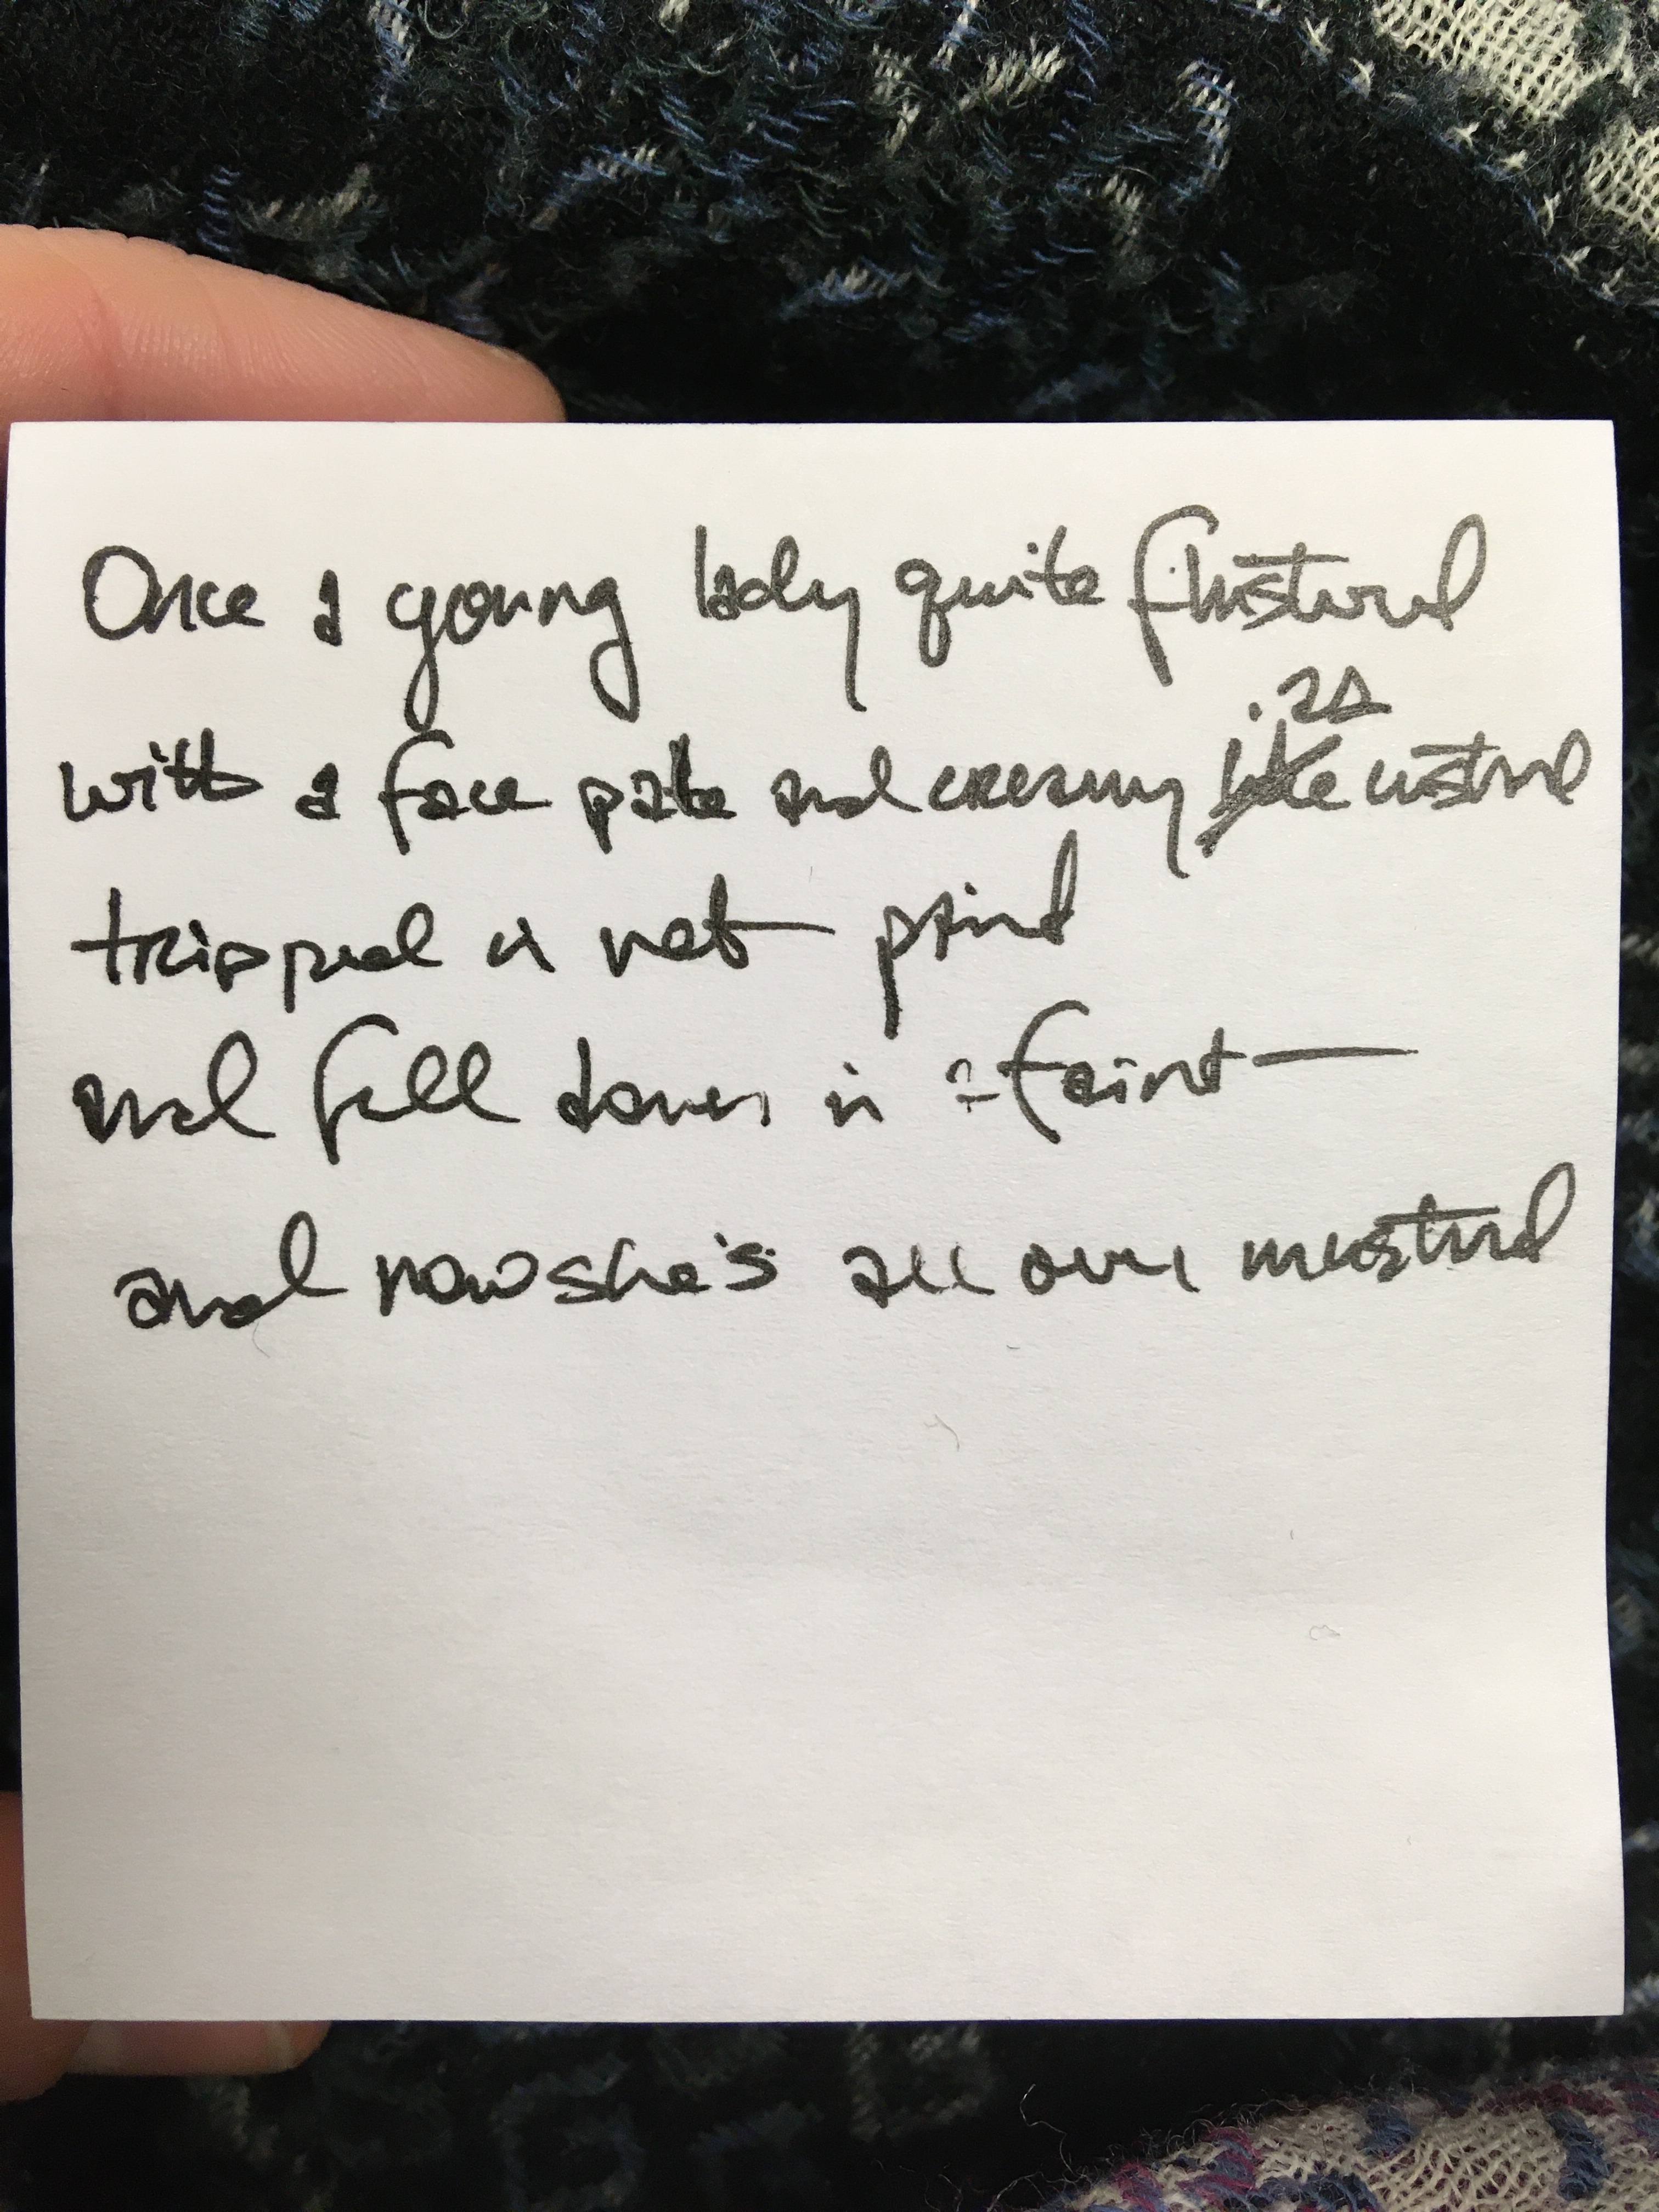 Once a young lady quite flusturd
with a face pale and creamy as custurd
tripped in wet paint
and fell down in a faint
and now she's all over musturd